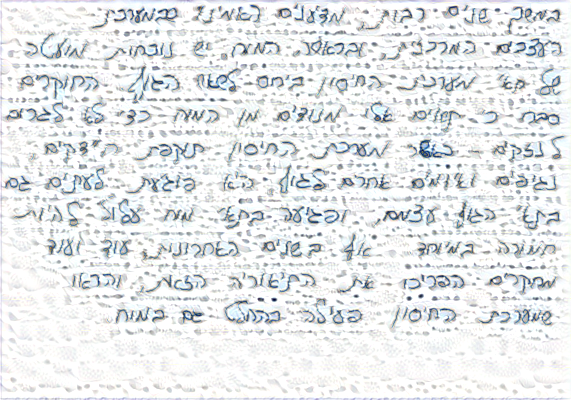 במשך שנים רבות, מדענים האמינו שבמערכת
העצבים המרכזית, ובראשה המוח, יש נוכחות מועטה
של תאי מערכת החיסון ביחס לשאר הגוף. החוקרים
סברו כי תאים אלו מנודים מן המוח כדי לא לגרום
לנזקים - כאשר מערכת החיסון תוקפת חיידקים
נגיפים ואיומים אחרים לגוף, היא פוגעת לעיתים גם
בתאי הגוף עצמם, ופגיעה בתאי מוח עלולה להיות
חמורה במיוחד. אך בשנים האחרונות, עוד ועוד
מחקרים הפריכו את התיאוריה הזאת, והראו
שמערכת החיסון פעילה בהחלט גם במוח